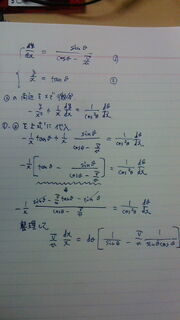 dy/dx = sinθ / (cosθ - V/v) ①
y/x = tanθ ②
②の両辺をxで微分
- y/x² + 1/x dy/dx = 1/cos²θ dθ/dx
①,②を上式に代入
- 1/x tanθ + 1/x sinθ / (cosθ - V/v) = 1/cos²θ dθ/dx
- 1/x [ tanθ - sinθ / (cosθ - V/v) ] = 1/cos²θ dθ/dx
- 1/x (sinθ - V/v tanθ - sinθ) / (cosθ - V/v) = 1/cos²θ dθ/dx
整理して
V/v dx/x = dθ [ 1/sinθ - V/v 1/(sinθcosθ) ]